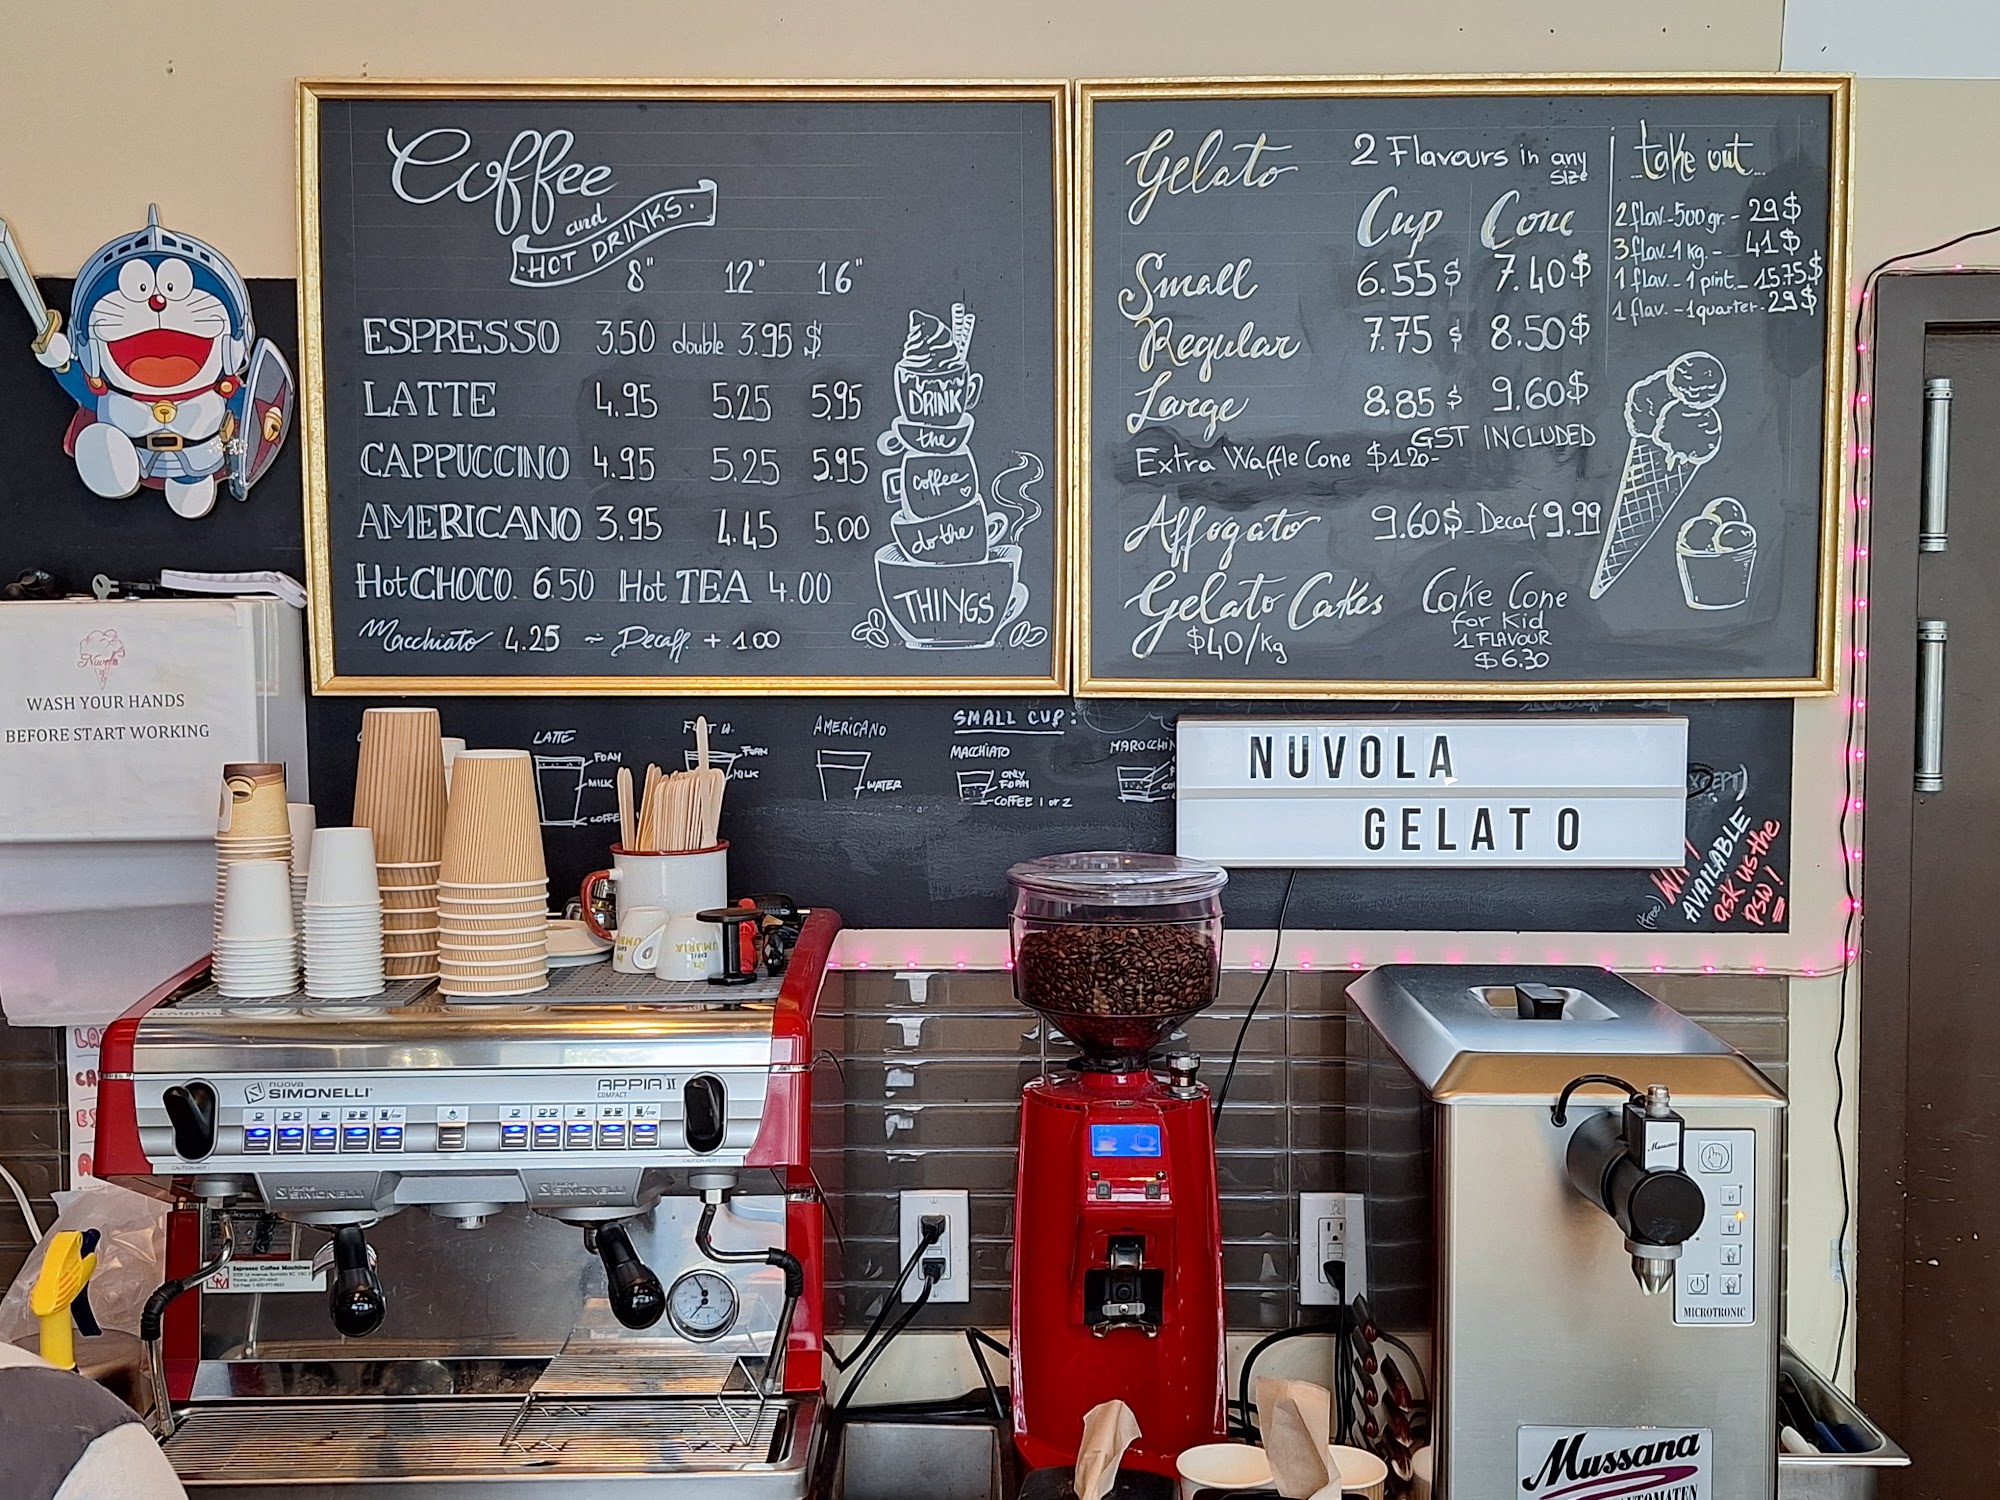 Coffee
and
HOT DRINKS.
8" 12" 16"
ESPRESSO 3.50 double 3.95 $
LATTE 4.95 5.25 5.95
CAPPUCCINO 4.95 5.25 5.95
AMERICANO 3.95 4.45 5.00
Hot CHOCO. 6.50 Hot TEA 4.00
Macchiato 4.25 ~ Decaff. + 1.00
DRINK
the
coffee
do the
THINGS
Gelato 2 Flavours in any size
Cup Cone
Small 6.55$ 7.40$
Regular 7.75$ 8.50$
Large 8.85$ 9.60$
GST INCLUDED
Extra Waffle Cone $1.20-
Affogato 9.60$ - Decaf 9.99
Gelato Cakes
$40/kg
Cake Cone
for Kid
1 FLAVOUR
$6.30
...take out...
2 flav.-500gr.- 29$
3 flav.-1 kg.- - 41$
1 flav.- 1 pint - 15.75$
1 flav. -1quarter- 29$
Nuvola
WASH YOUR HANDS
BEFORE START WORKING
LATTE
FOAM
MILK
FOAM
MILK
AMERICANO
WATER
SMALL CUP:
MACCHIATO
ONLY
FOAM
COFFEE 1 or 2
NUVOLA
GELATO
(free)
AVAILABLE
ask us the
PSW!
nuova
SIMONELLI
APPIA II
COMPACT
CAUTION HOT
CAUTION HOT
SIMONELLI
SIMONELLI
Espresso Coffee Machines
UMBRIA
Mussana
MICROTRONIC
Mussana